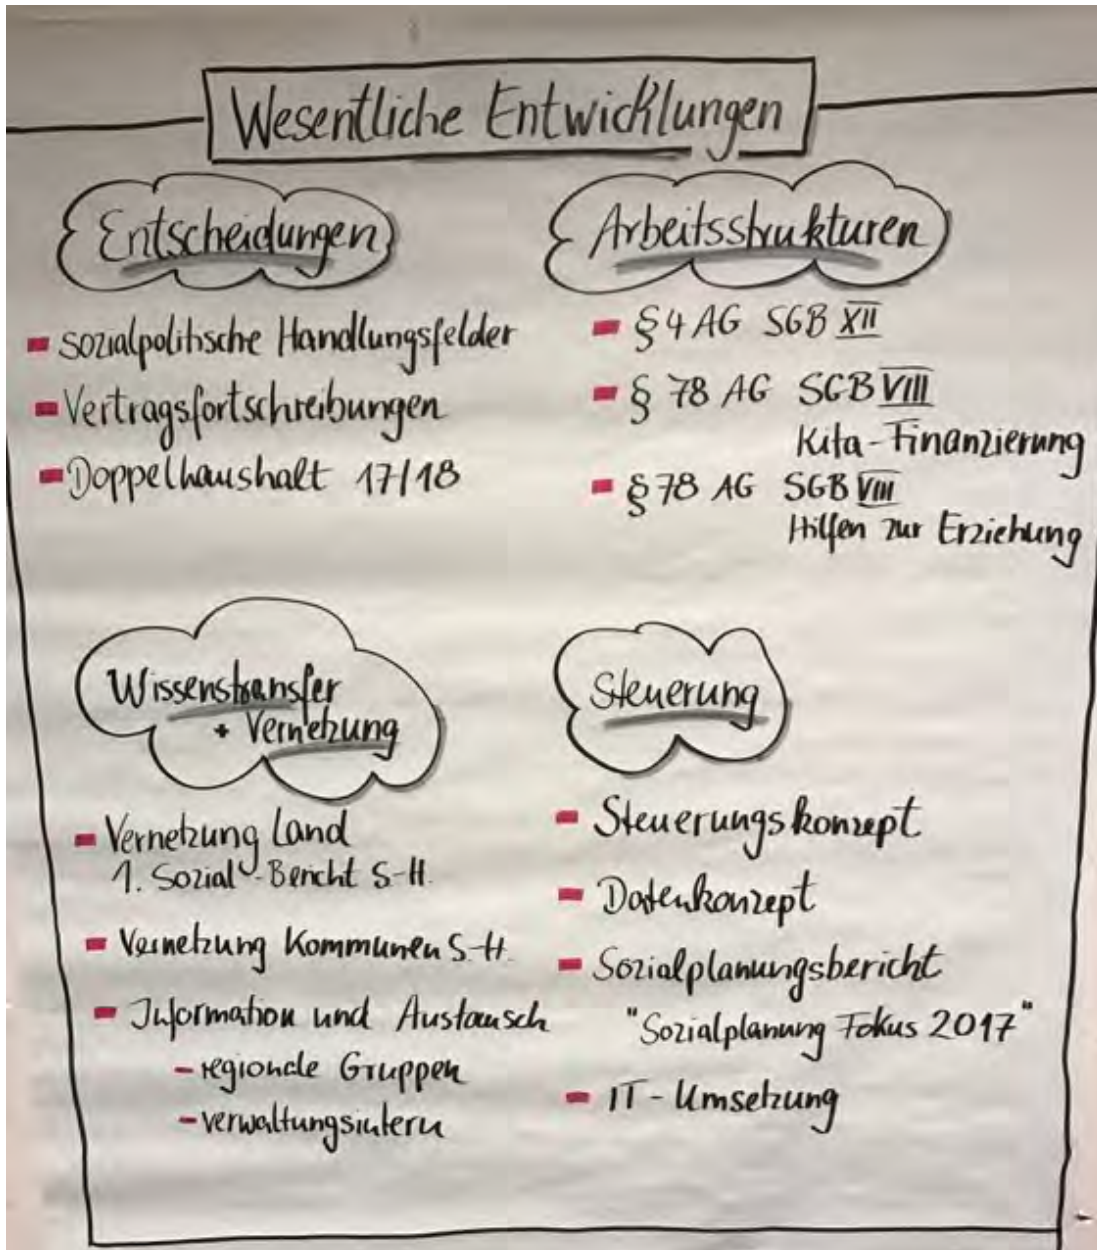 Wesentliche Entwicklungen
Entscheidungen
- sozialpolitische Handlungsfelder
- Vertragsfortschreibungen
- Doppelhaushalt 17/18
Arbeitsstrukturen
- § 4 AG SGB XII
- § 78 AG SGB VIII
Kita-Finanzierung
- § 78 AG SGB VIII
Hilfen zur Erziehung
Wissenstransfer
+ Vernetzung
- Vernetzung Land
1. Sozial-Bericht S-H.
- Vernetzung Kommunen S-H.
- Information und Austausch
- regionale Gruppen
- verwaltungsintern
Steuerung
- Steuerungskonzept
- Datenkonzept
- Sozialplanungsbericht
"Sozialplanung Fokus 2017"
- IT-Umsetzung